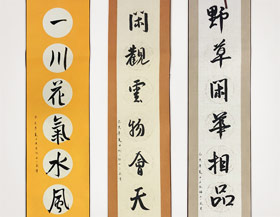 野草閑華相品
閑觀雲物會天
一川花氣水風